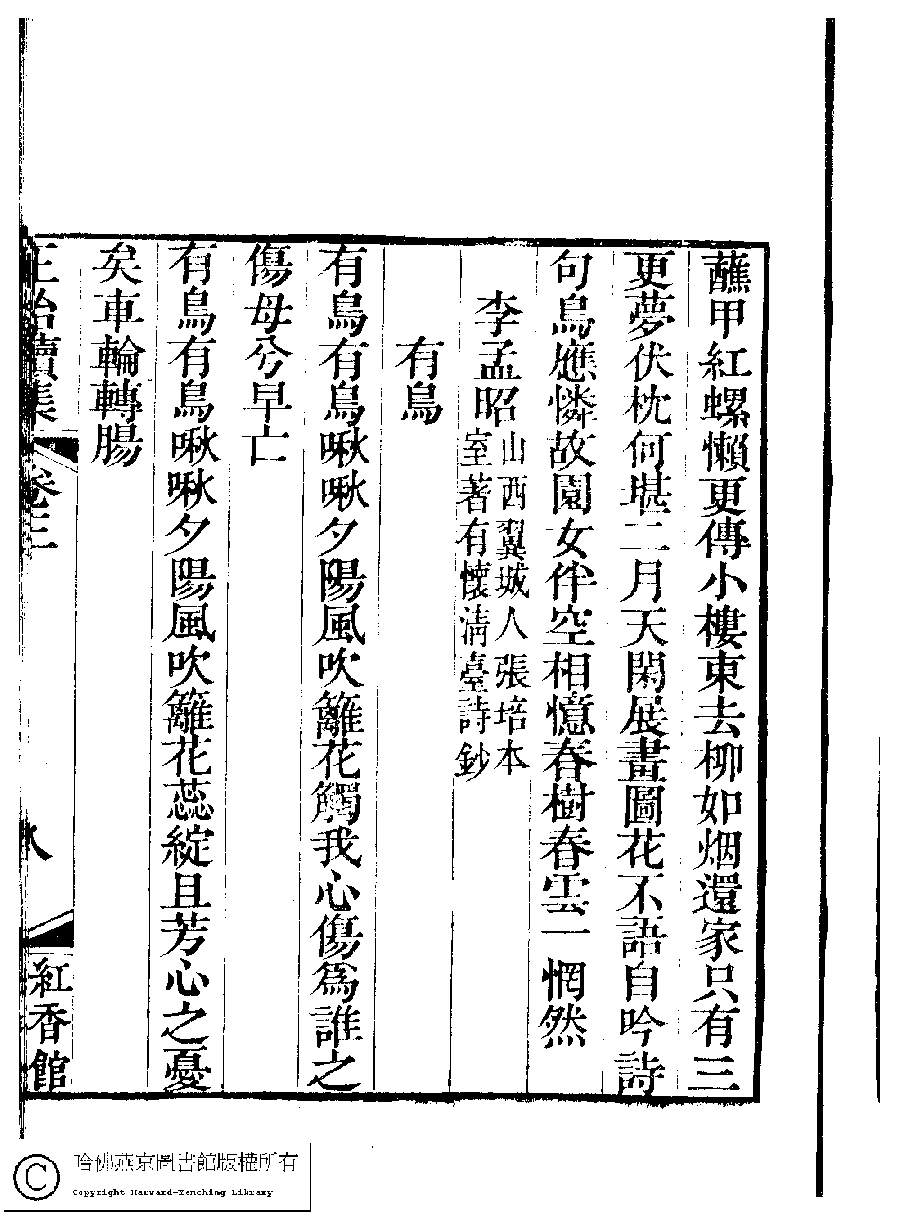 蘸甲紅螺懶更傳小樓東去柳如烟還家只有三
更夢伏枕何堪二月天閑展畫圖花不語自吟詩
句鳥應憐故園女伴空相憶春樹春雲一惘然
李孟昭山西翼城人張培本
室著有懷清臺詩鈔
有鳥
有鳥有鳥啾啾夕陽風吹籬花觸我心傷爲誰之
傷母兮早亡
有鳥有鳥啾啾夕陽風吹籬花蕊綻且芳心之憂
矣車輪轉腸
正始續集 卷三 八 紅香館
哈佛燕京圖書館版權所有
Copyright Harvard-Yenching Library